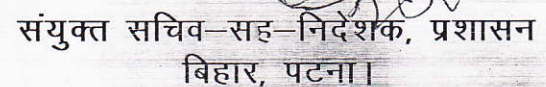 संयुक्त सचिव–सह–निदेशक, प्रशासन
बिहार, पटना।